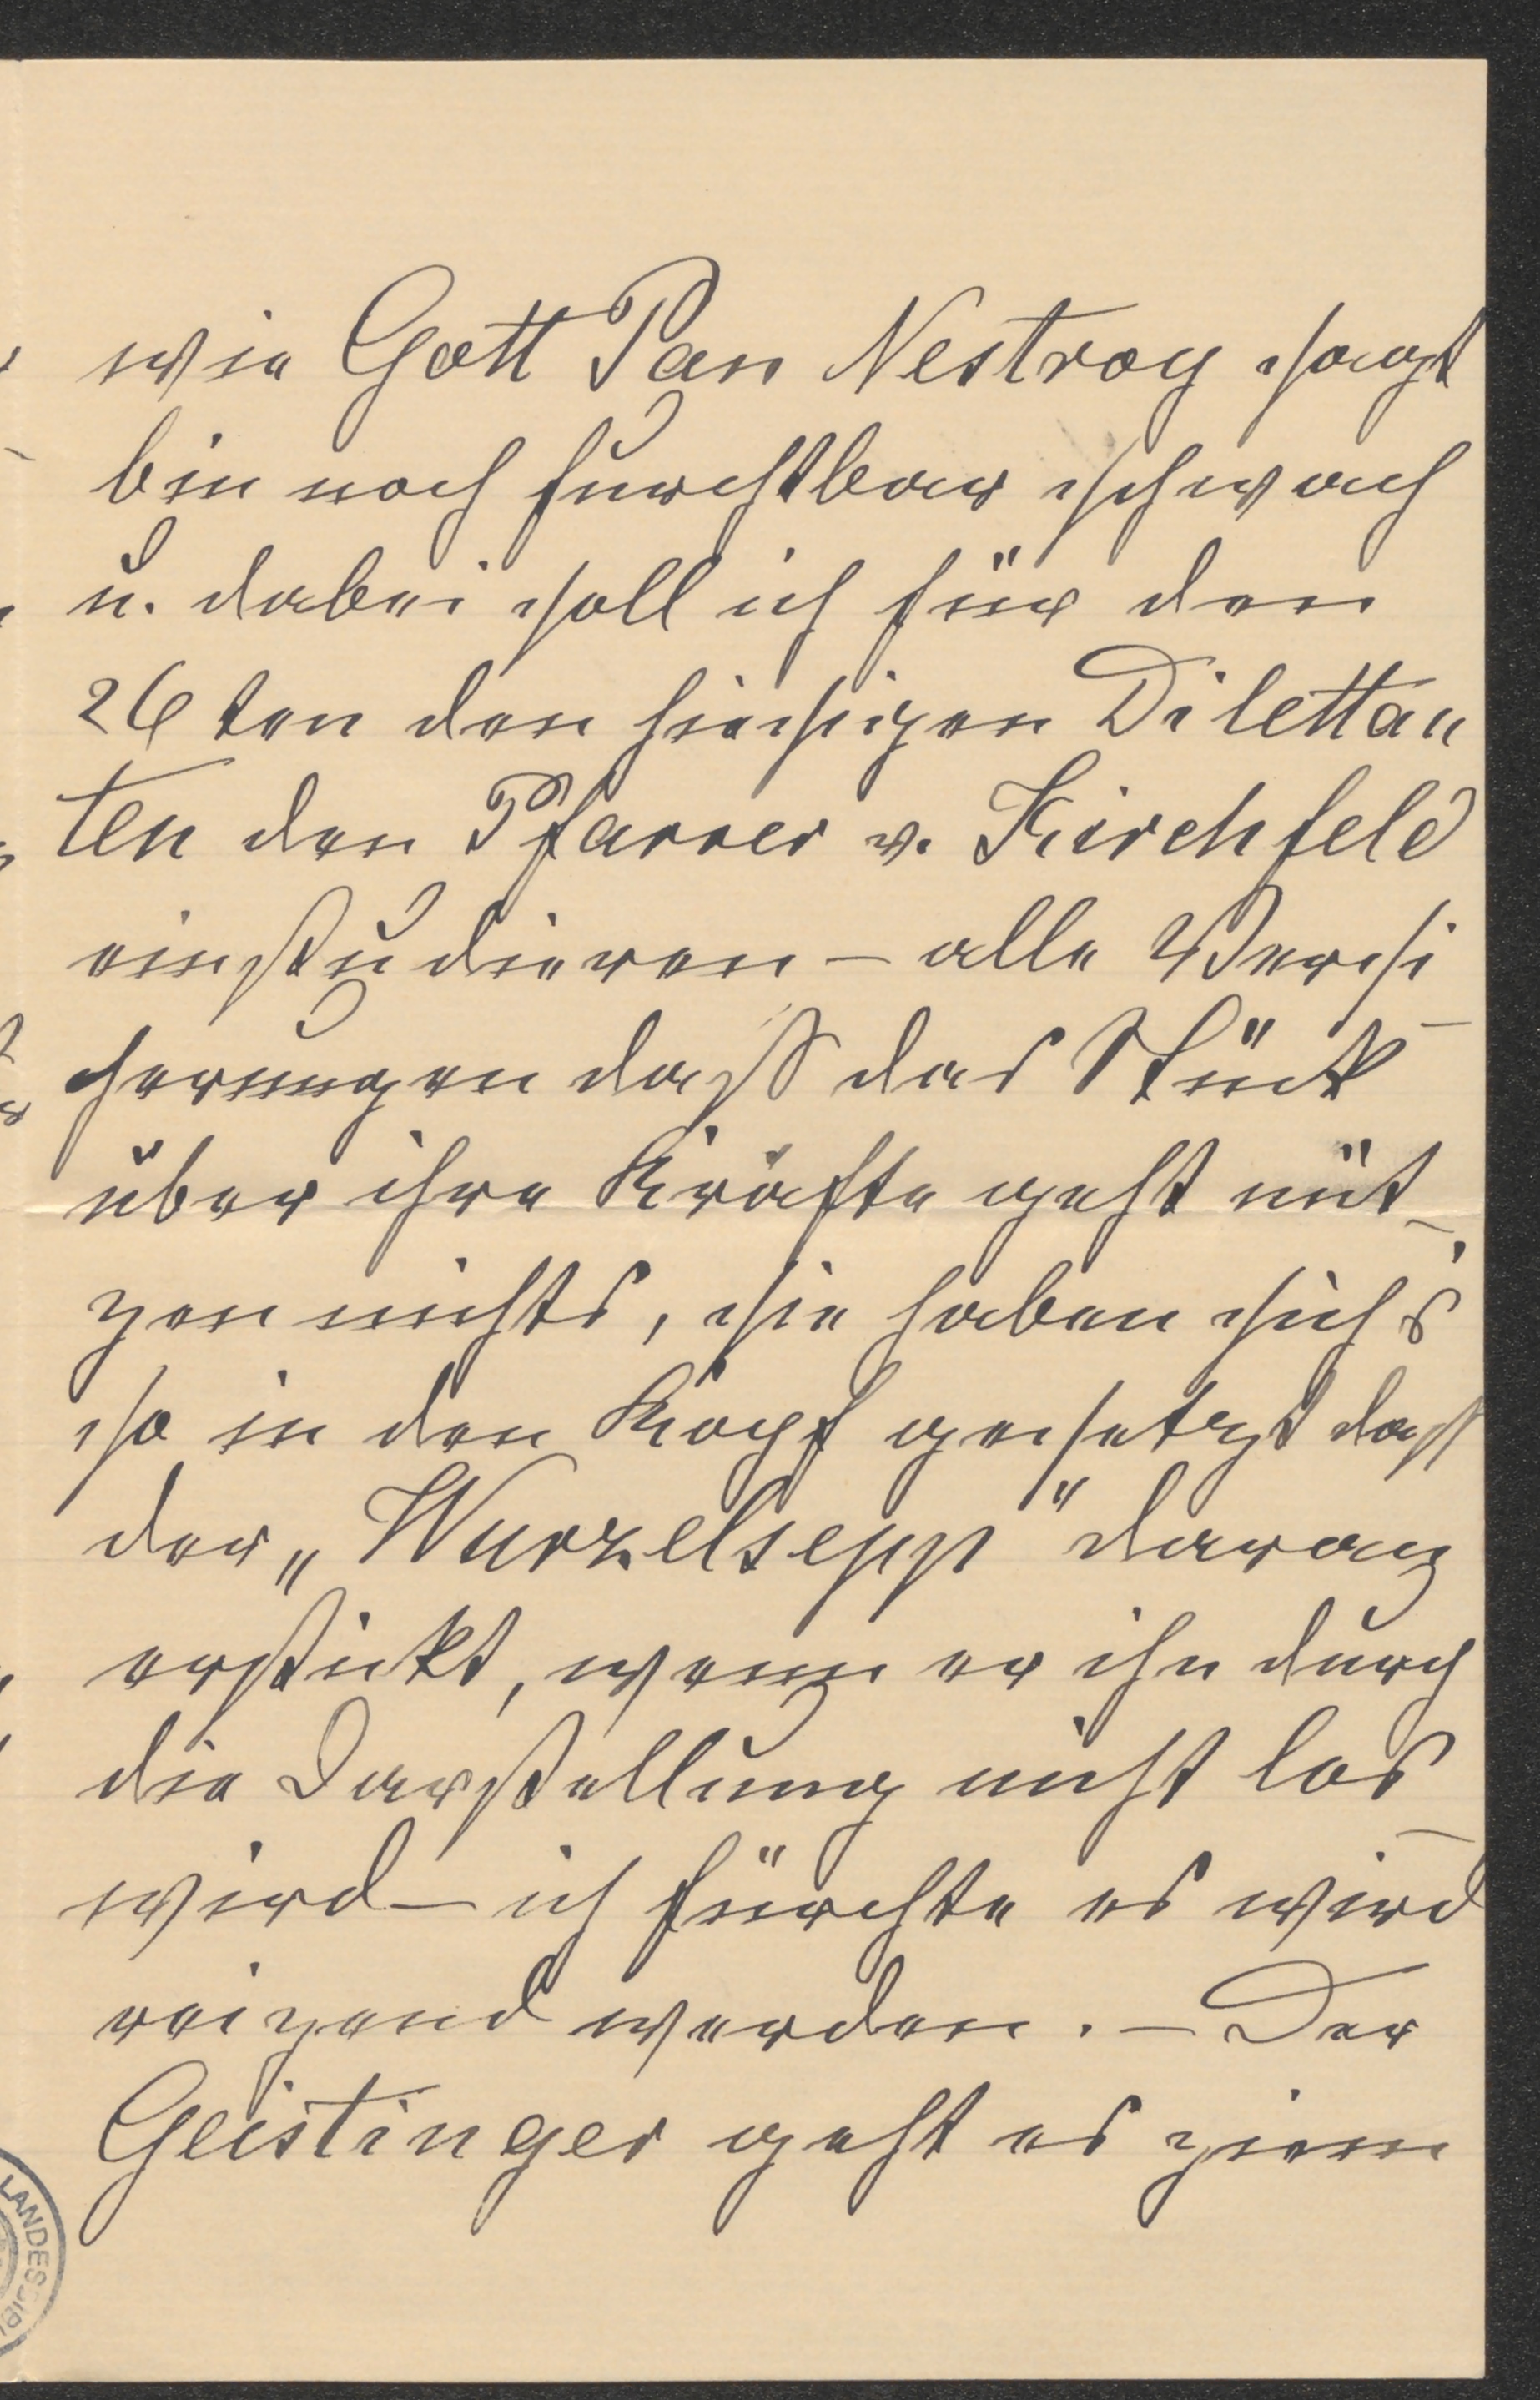 wie Gott Pan Nestroy sagt
bin noch furchtbar schwach
u. dabei soll ich für den
26ten den hiesigen Dilettan„
ten den Pfarrer v. Kirchfeld
einstudieren – alle Versi
cherungen daß das Stück
über ihre Kräfte geht nüt
zen nichts, sie haben sich's
so in den Kopf gesetzt daß
der „Wurzelsepp" daran
erstickt, wenn er ihn durch
die Darstellung nicht los
wird – ich fürchte es wird
reizend werden. – Der
Geistinger geht es ziem
LANDES